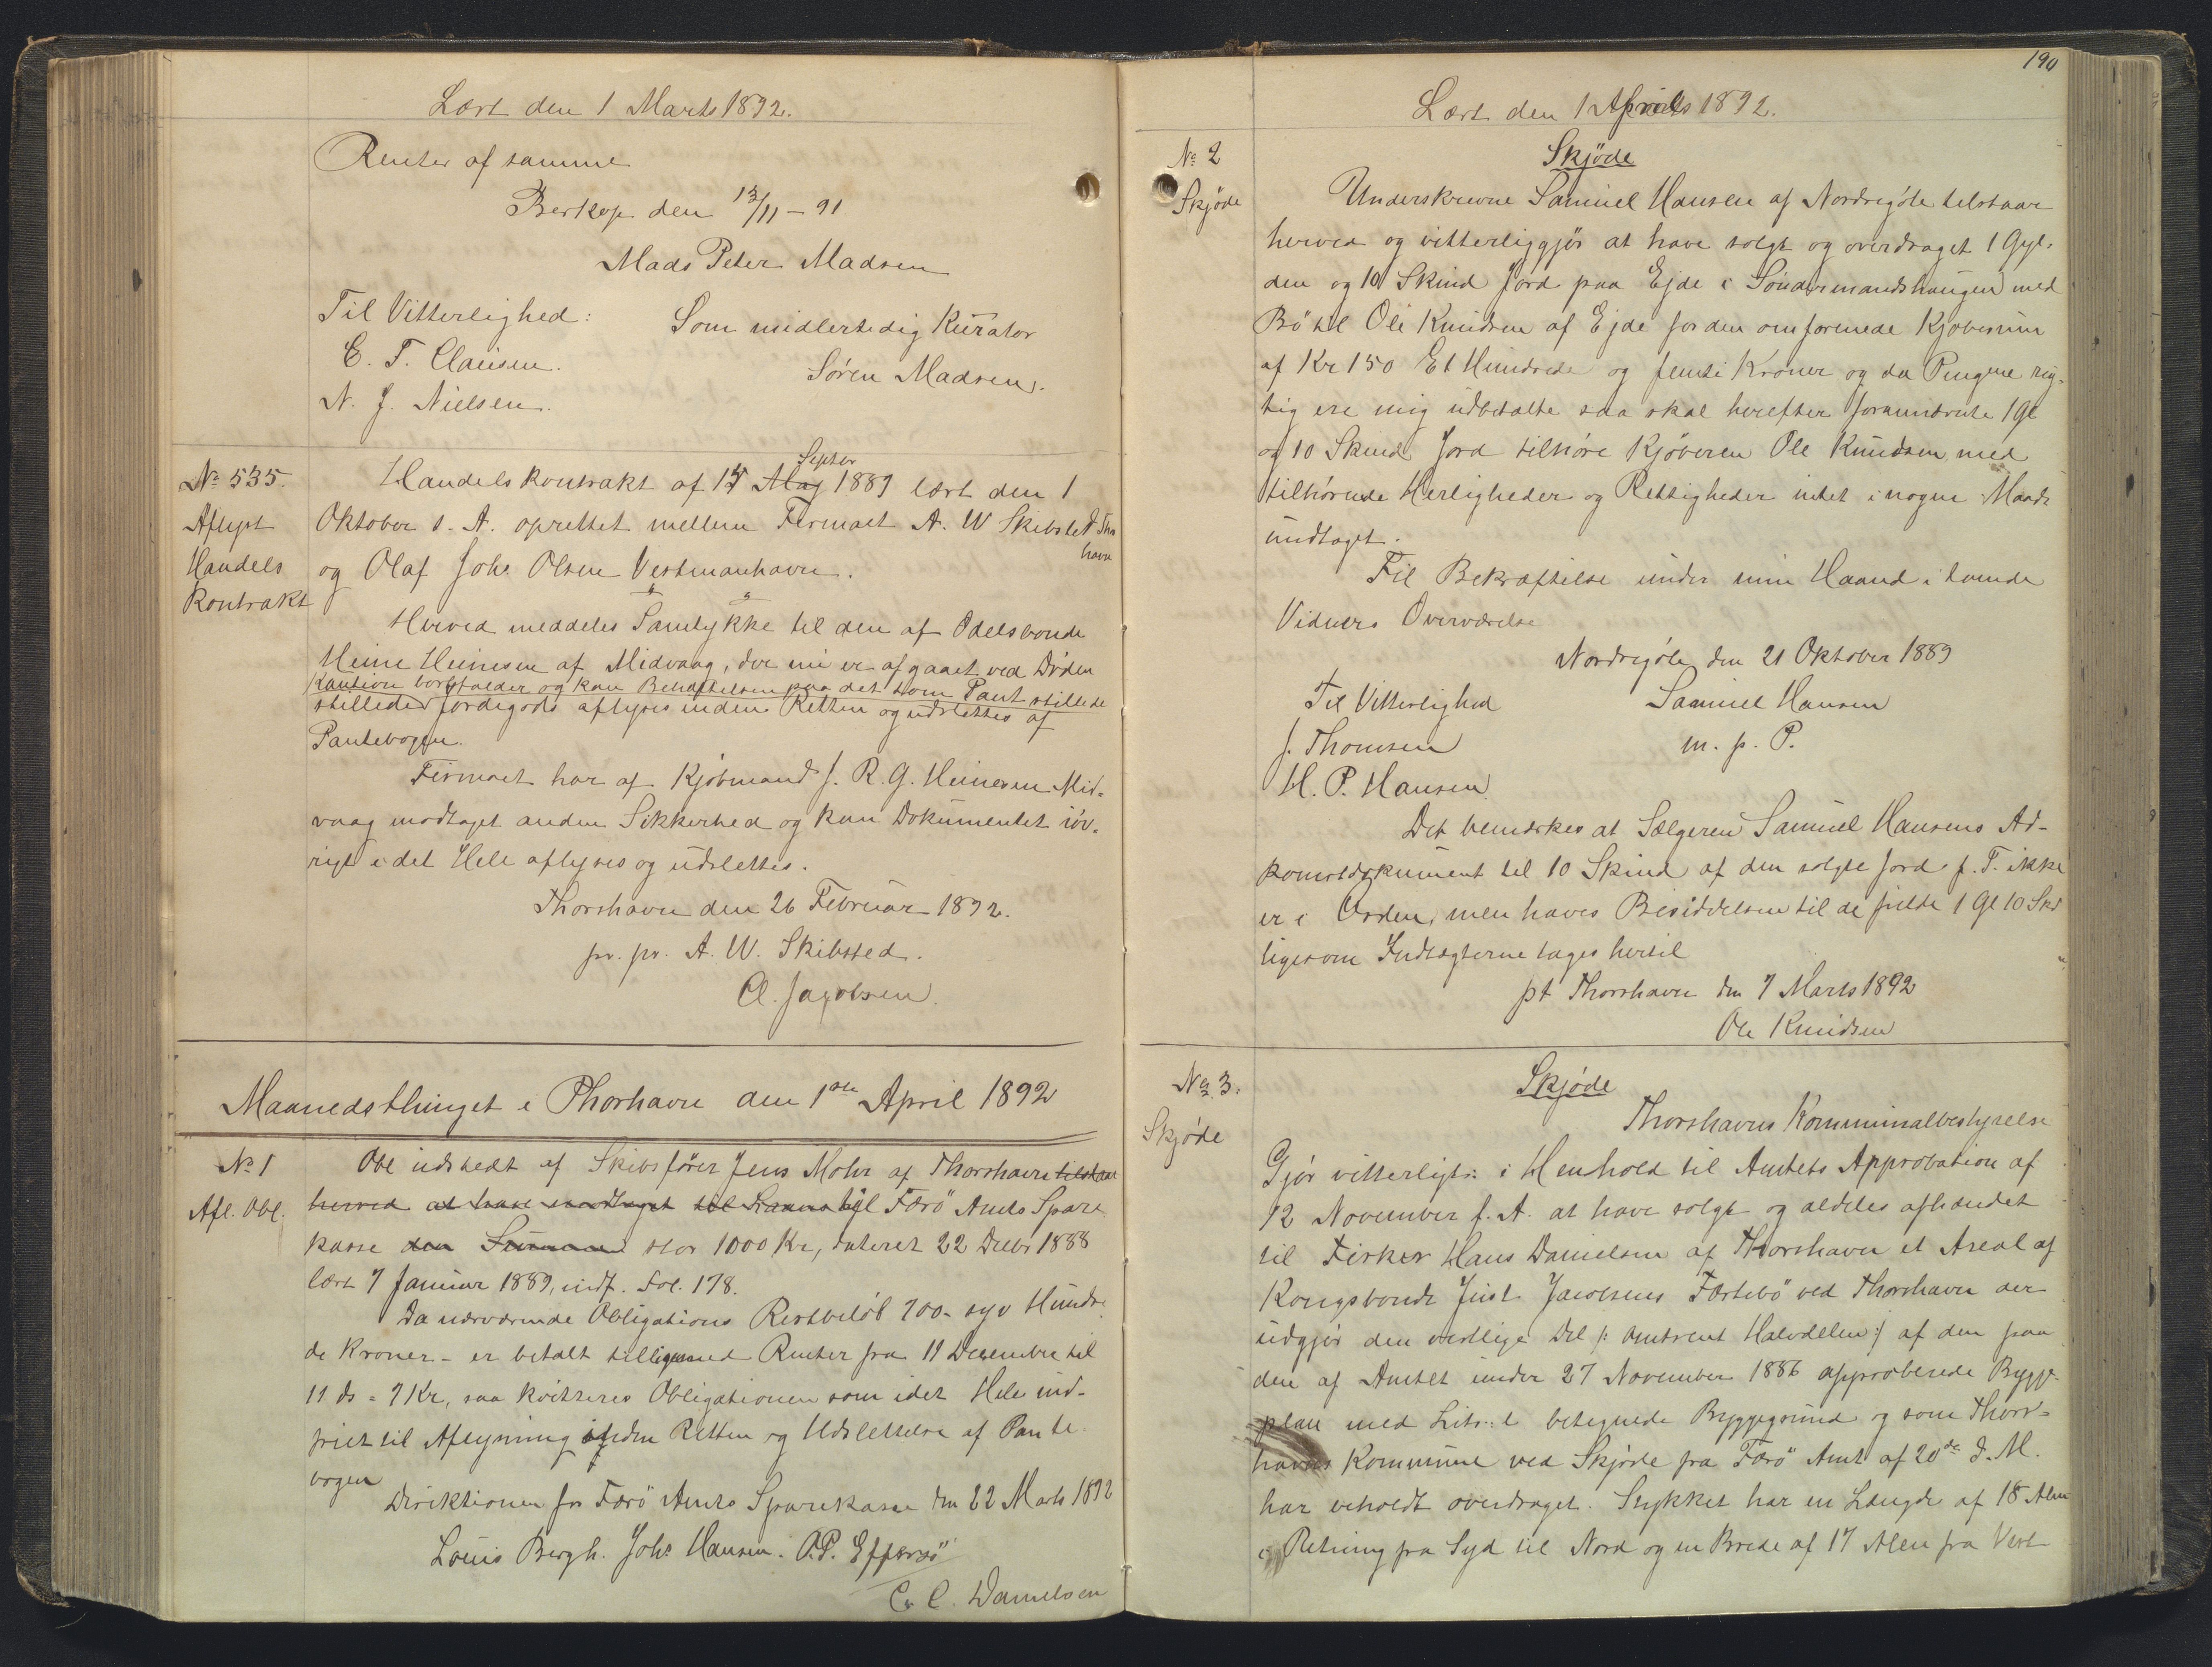 Læst den 1 Marts 1892.
Renter af samme
Porkop den 13/11 - 91
Mads Peter Madsen
Til Vitterlighed: Som midlertidig Kurator
E. T. Clausen. Søren Madsen.
N. J. Nielsen.
No 535. Aflyst Handels kontrakt
Septbr
Handelskontrakt af 15 Maj 1889 læst den 1
Oktober s. A. oprettet mellem Firmaet A. W Skibsted Thshavn
og Olaf Johs Olsen Vestmanhavn.
Herved meddeles Samtykke til den af Odelsbonde
Heine Heinesen af Midvaag, der nu er afgaaet ved Døden
Kaution bortfalder og kan Behæftelsen paa det som Pant stillede
stillede Jordegods aflyses inden Retten og udslettes af
Pantebogen.
Firmaet har af Kjøbmand J. R. G. Heinesen Mid-
vaag modtaget anden Sikkerhed og kan Dokumentet iøv-
rigt i det Hele aflyses og udslettes.
Thorshavn den 26 Februar 1892.
pr. pr. A. W. Skibsted.
Cl. Jacobsen.
Maanedsthinget i Thorhavn den 1ste April 1892
No 1 Afl. Obl.
Obl udstedt af Skibsfører Jens Mohr af Thorshavn tilstaar
herved at have modtaget til Laans til Færö Amts Spare
kasse den Summa stor 1000 Kr, dateret 22 Decbr 1888
læst 7 Januar 1889, indf. Fol. 178.
Da nærværende Obligations Restbeløb 700- syv Hundre
de Kroner - er betalt tilligemed Renter fra 11 December til
11 ds = 7 Kr, saa kvitteres Obligationen som idet Hele ind-
friet til Aflysning inden Retten og Udslettelse af Pante
bogen
Direktionen for Færö Amts Sparekasse den 22 Marts 1892
Louis Bergh. Johs Hansen. O.P. Effersö
C. C. Danielsen
190
Læst den 1 April 1892.
No 2 Skjøde
Skjøde
Underskrevne Samuel Hansen af Nordregöte tilstaar
herved og vitterliggjør at have solgt og overdraget 1 Gyl-
den og 10 Skind Jord paa Ejde i Søndermandshaugen med
Bö til Ole Knudsen af Ejde for den omforenede Kjøbesum
af Kr 150 Et Hundrede og femti Kroner og da Pengene rig-
tig ere mig udbetalte saa skal herefter forannævnte 1 Gl
og 10 Skind Jord tilhøre Kjøberen Ole Knudsen med
tilhørende Herligheder og Rettigheder intet i nogen Maade
undtaget.
Til Bekræftelse under min Haand i tvende
Vidners Overværelse
Nordregöte den 21 Oktober 1889
Til Vitterlighed Samuel Hansen
J. Thomsen m. p. P.
H. P. Hansen
Det bemærkes at Sælgeren Samuel Hansens Ad-
komstdokument til 10 Skind af den solgte Jord p. T. ikke
er i Orden, men haves Besiddelsen til de fulde 1 Gl 10 Skd
ligesom Indtægterne tages hertil
pt Thorshavn den 7 Marts 1892
Ole Knudsen
No 3. Skjøde
Skjøde
Thorshavns Kommunalbestyrelse
Gjør vitterligt: i Henhold til Amtets Approbation af
12 November f. A. at have solgt og aldeles afhændet
til Firker Hans Danielsen af Thorshavn et Areal af
Kongsbonde Just Jacobsens Færtebö ved Thorshavn der
udgjør den vestlige Del /: omtrent Halvdelen :/ af den paa
den af Amtet under 27 November 1886 approberede Bygge-
plan med Litr: l betegnede Byggegrund og som Thors-
havns Kommune ved Skjøde fra Færö Amt af 20de d. M.
har beholdt overdraget. Stykket har en Længde af 18 Alen
i Retning fra Syd til Nord og en Brede af 17 Alen fra Vest